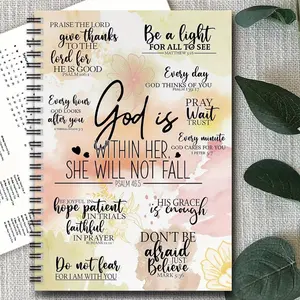 PRAISE THE LORD
give thanks
to the
lord for
HE IS GOOD
PSALM 106:1
Be a light
FOR ALL TO SEE
MATTHEW 5:16
Every day
GOD THINKS OF YOU
PSALM 139:17
Every hour
GOD LOOKS
AFTER YOU
PRAY
Wait
TRUST
Every minute
GOD CARES FOR YOU
1 PETER 5:7
God is
WITHIN HER,
SHE WILL NOT FALL
PSALM 46:5
BE JOYFUL IN
hope patient
IN TRIALS
faithful
IN PRAYER
ROMANS 12:12
HIS GRACE
is enough
DON'T BE
afraid
JUST
Believe
MARK 5:36
Do not fear
FOR I AM WITH YOU